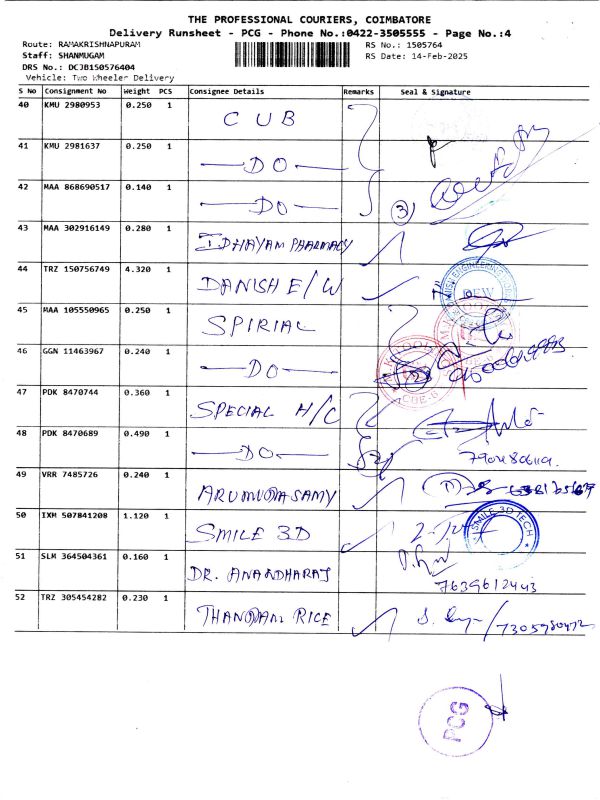 THE PROFESSIONAL COURIERS, COIMBATORE
Delivery Runsheet - PCG - Phone No.:0422-3505555 - Page No.:4
Route: RAMAKRISHNAPURAM RS No.: 1505764
Staff: SHANMUGAM RS Date: 14-Feb-2025
DRS No.: DCJB150576404
Vehicle: Two Wheeler Delivery
S No Consignment No Weight PCS Consignee Details Remarks Seal & Signature
40 KMU 2980953 0.250 1 CUB
41 KMU 2981637 0.250 1 —DO—
42 MAA 868690517 0.140 1 —DO— 3)
43 MAA 302916149 0.280 1 IDHAYAM PHARMACY
44 TRZ 150756749 4.320 1 DANISH E/W
45 MAA 105550965 0.250 1 SPIRIAL
46 GGN 11463967 0.240 1 —DO—
47 PDK 8470744 0.360 1 SPECIAL H/C
48 PDK 8470689 0.490 1 —DO—
49 VRR 7485726 0.240 1 ARUMUGASAMY
50 IXM 507841208 1.120 1 SMILE 3D SMILE 3D TECH
51 SLM 364504361 0.160 1 DR. ANANDHARAJ 7639612443
52 TRZ 305454282 0.230 1 THANGAM RICE 7305980472
PCG